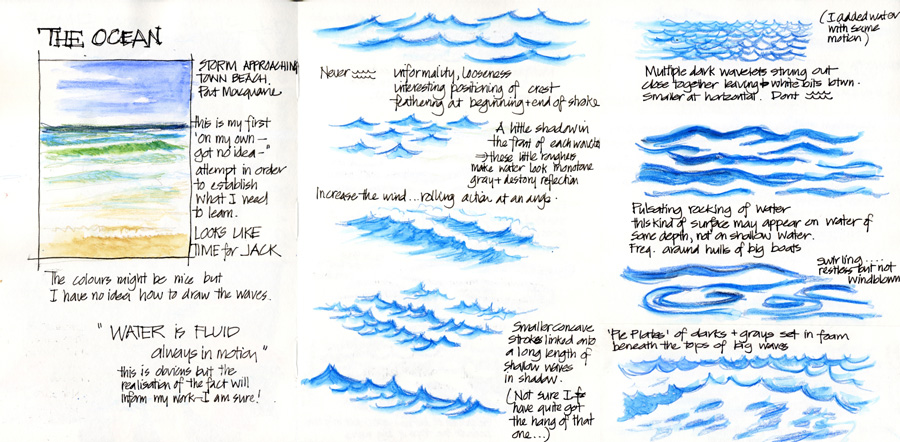 THE OCEAN
STORM APPROACHING
TOWN BEACH.
Port Macquarie
this is my first
'on my own –
got no idea –"
attempt in order
to establish
what I need
to learn.
LOOKS LIKE
TIME for JACK
The colours might be nice but
I have no idea how to draw the waves.
"WATER IS FLUID
always in motion"
this is obvious but the
realisation of the fact will
inform my work – I am sure!
Never
uniformality, looseness
interesting positioning of crest
feathering at beginning + end of stroke
A little shadow in
the front of each wavelet
⇒ these little roughers
make water look monotone
gray + destory reflection
Increase the wind... rolling action at an angle.
Smaller concave
strokes linked onto
a long length of
shallow waves
in shadow.
(Not sure I
have quite got
the hang of that
one...)
(I added water
with same
motion)
Multiple dark wavelets strung out
close together leaving white bits btwn.
Smaller at horizontal. Dont
Pulsating rocking of water
this kind of surface may appear on water of
some depth, not on shallow water.
Freq. around hulls of big boats
swirling....
restless but not
windblown
'Pie Plates' of darks + grays set in foam
beneath the tops of big waves